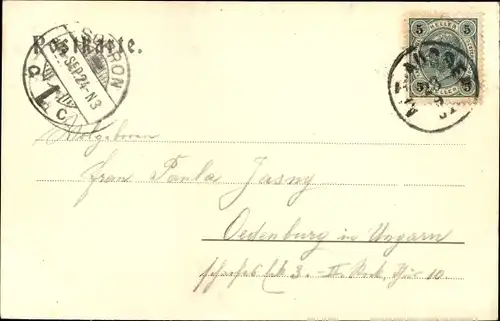 Postkarte.
SOPRON
SEP. 24-N3
C 1 C
5 HELLER 5
5 5
Wolgeboren
Frau Paula Jasny
Oedenburg in Ungarn
3. - II. 10.